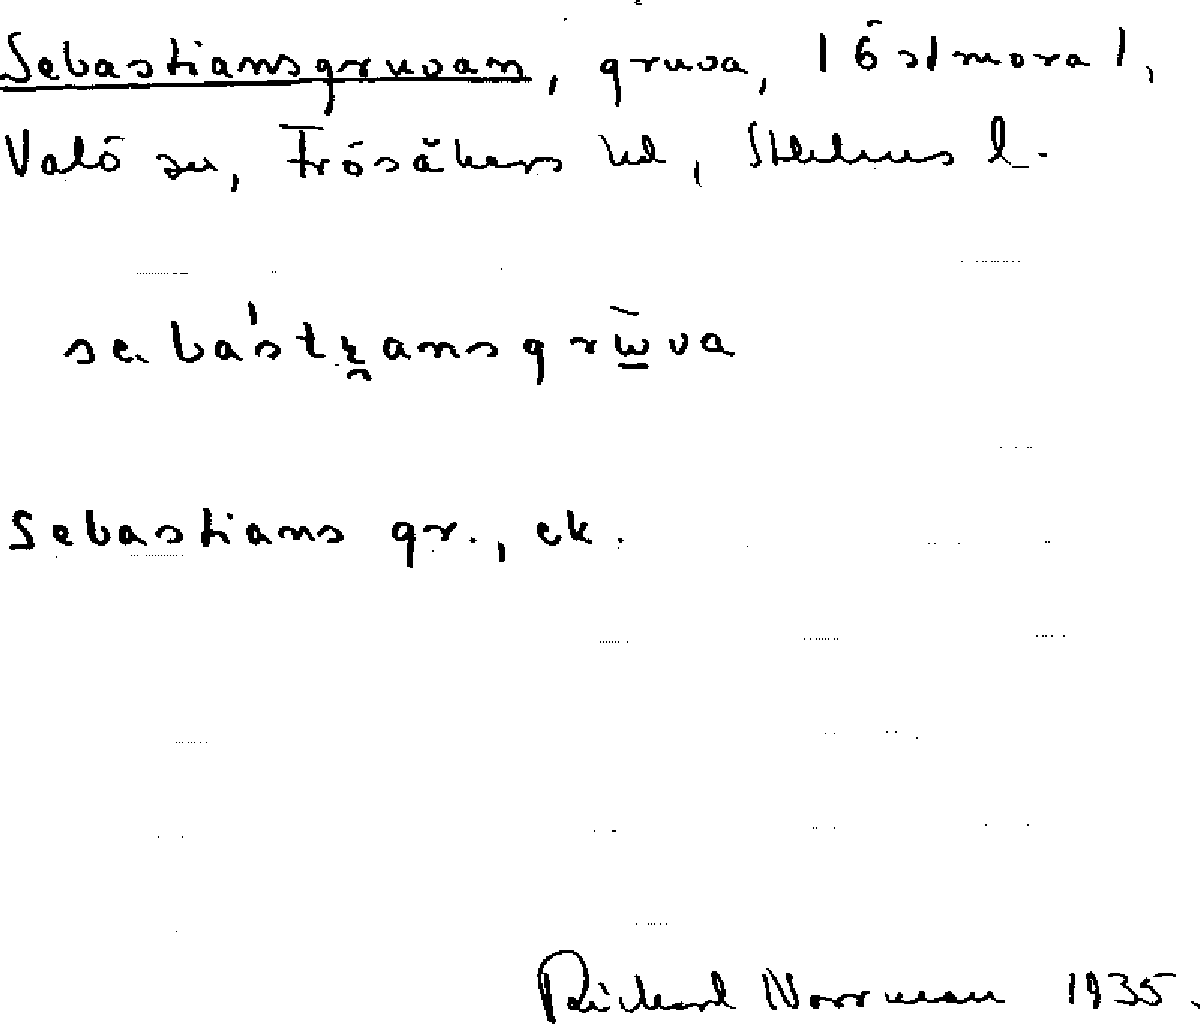 Sebastiansgruvan, gruva, i Östmora 1,
Valö sn, Frösåkers hd, Sthlms l.
se bástɪ̯ansgrɯ̀va
Sebastians gr., ek.
Rickard Norrman 1935.